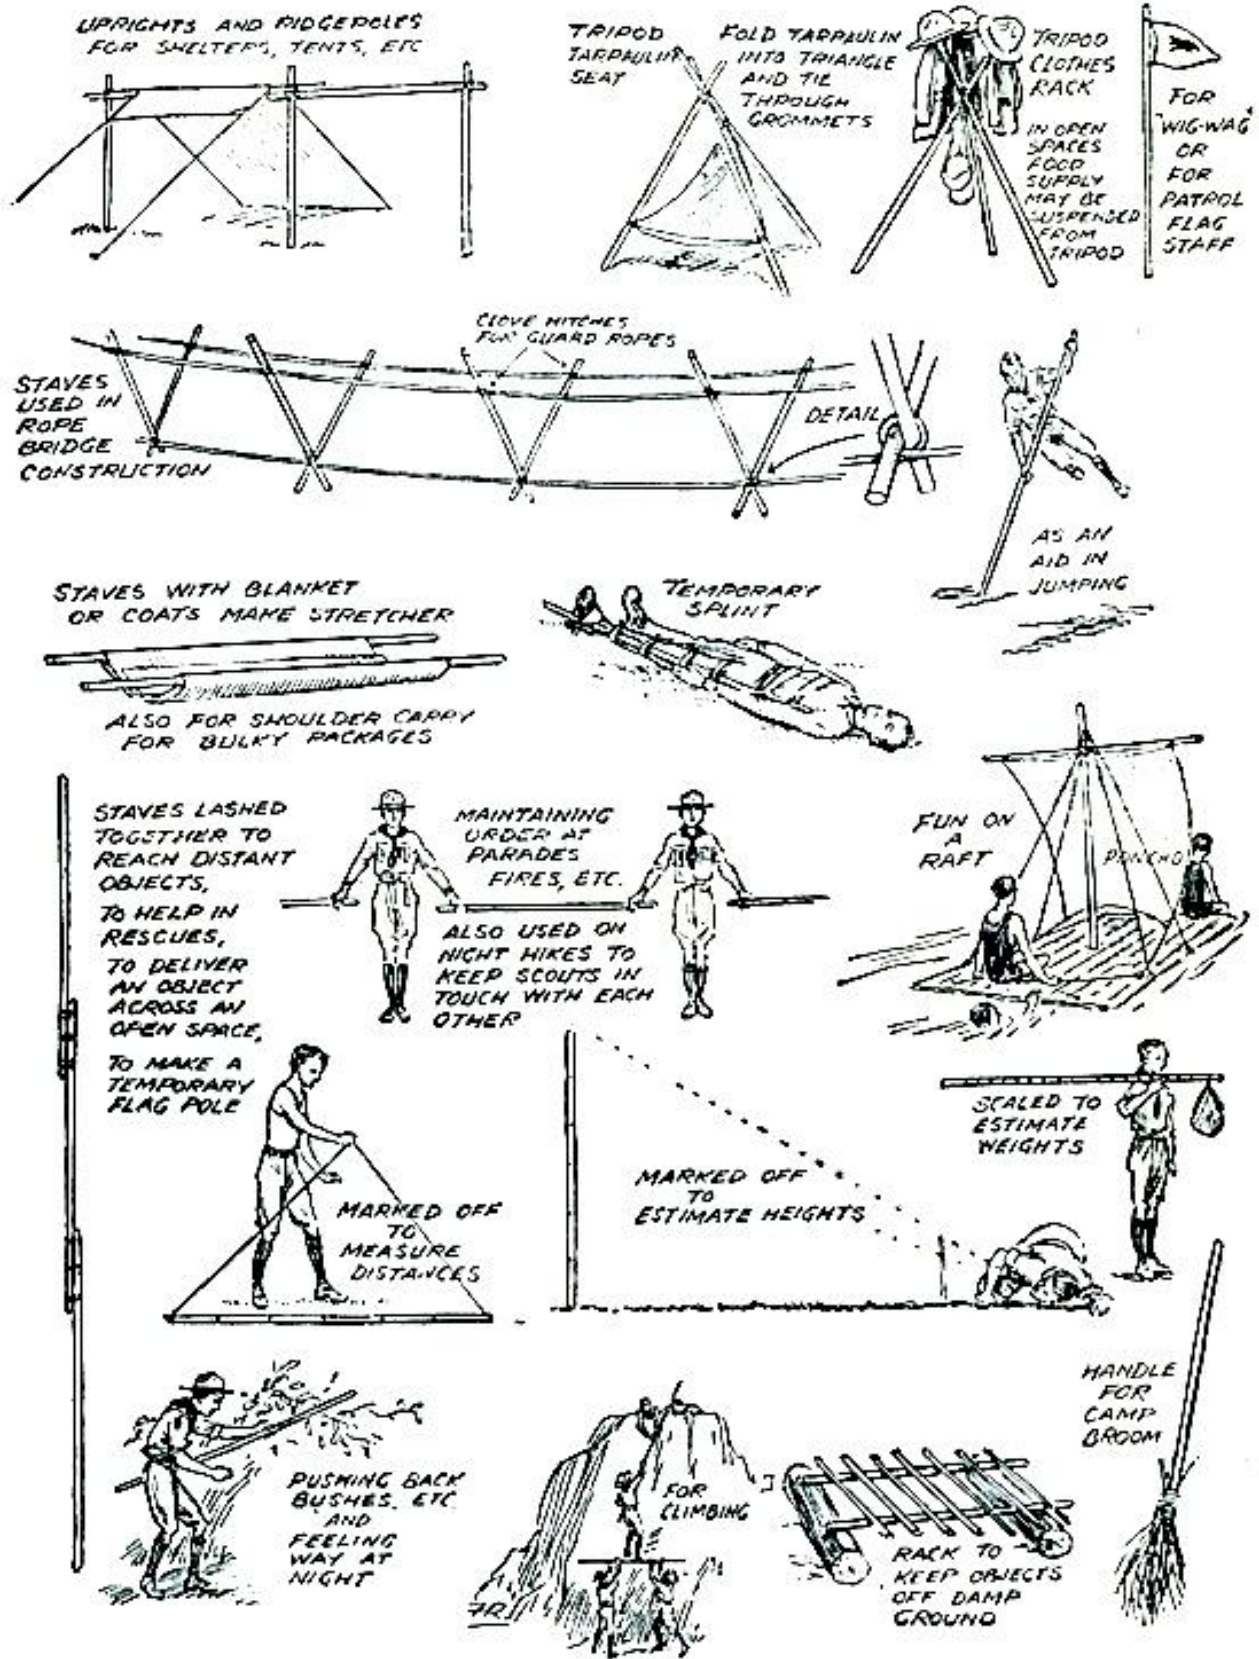 UPRIGHTS AND RIDGEPOLES
FOR SHELTERS, TENTS, ETC
TRIPOD
TARPAULIN
SEAT
FOLD TARPAULIN
INTO TRIANGLE
AND TIE
THROUGH
GROMMETS
TRIPOD
CLOTHES
RACK
IN OPEN
SPACES
FOOD
SUPPLY
MAY BE
SUSPENDED
FROM
TRIPOD
FOR
"WIG-WAG"
OR
FOR
PATROL
FLAG
STAFF
STAVES
USED IN
ROPE
BRIDGE
CONSTRUCTION
CLOVE HITCHES
FOR GUARD ROPES
DETAIL
AS AN
AID IN
JUMPING
STAVES WITH BLANKET
OR COATS MAKE STRETCHER
ALSO FOR SHOULDER CARRY
FOR BULKY PACKAGES
TEMPORARY
SPLINT
STAVES LASHED
TOGETHER TO
REACH DISTANT
OBJECTS,
TO HELP IN
RESCUES,
TO DELIVER
AN OBJECT
ACROSS AN
OPEN SPACE,
TO MAKE A
TEMPORARY
FLAG POLE
MAINTAINING
ORDER AT
PARADES
FIRES, ETC.
ALSO USED ON
NIGHT HIKES TO
KEEP SCOUTS IN
TOUCH WITH EACH
OTHER
FUN ON
A
RAFT
PONCHO
MARKED OFF
TO
MEASURE
DISTANCES
MARKED OFF
TO
ESTIMATE HEIGHTS
SCALED TO
ESTIMATE
WEIGHTS
PUSHING BACK
BUSHES, ETC
AND
FEELING
WAY AT
NIGHT
FOR
CLIMBING
RACK TO
KEEP OBJECTS
OFF DAMP
GROUND
HANDLE
FOR
CAMP
BROOM